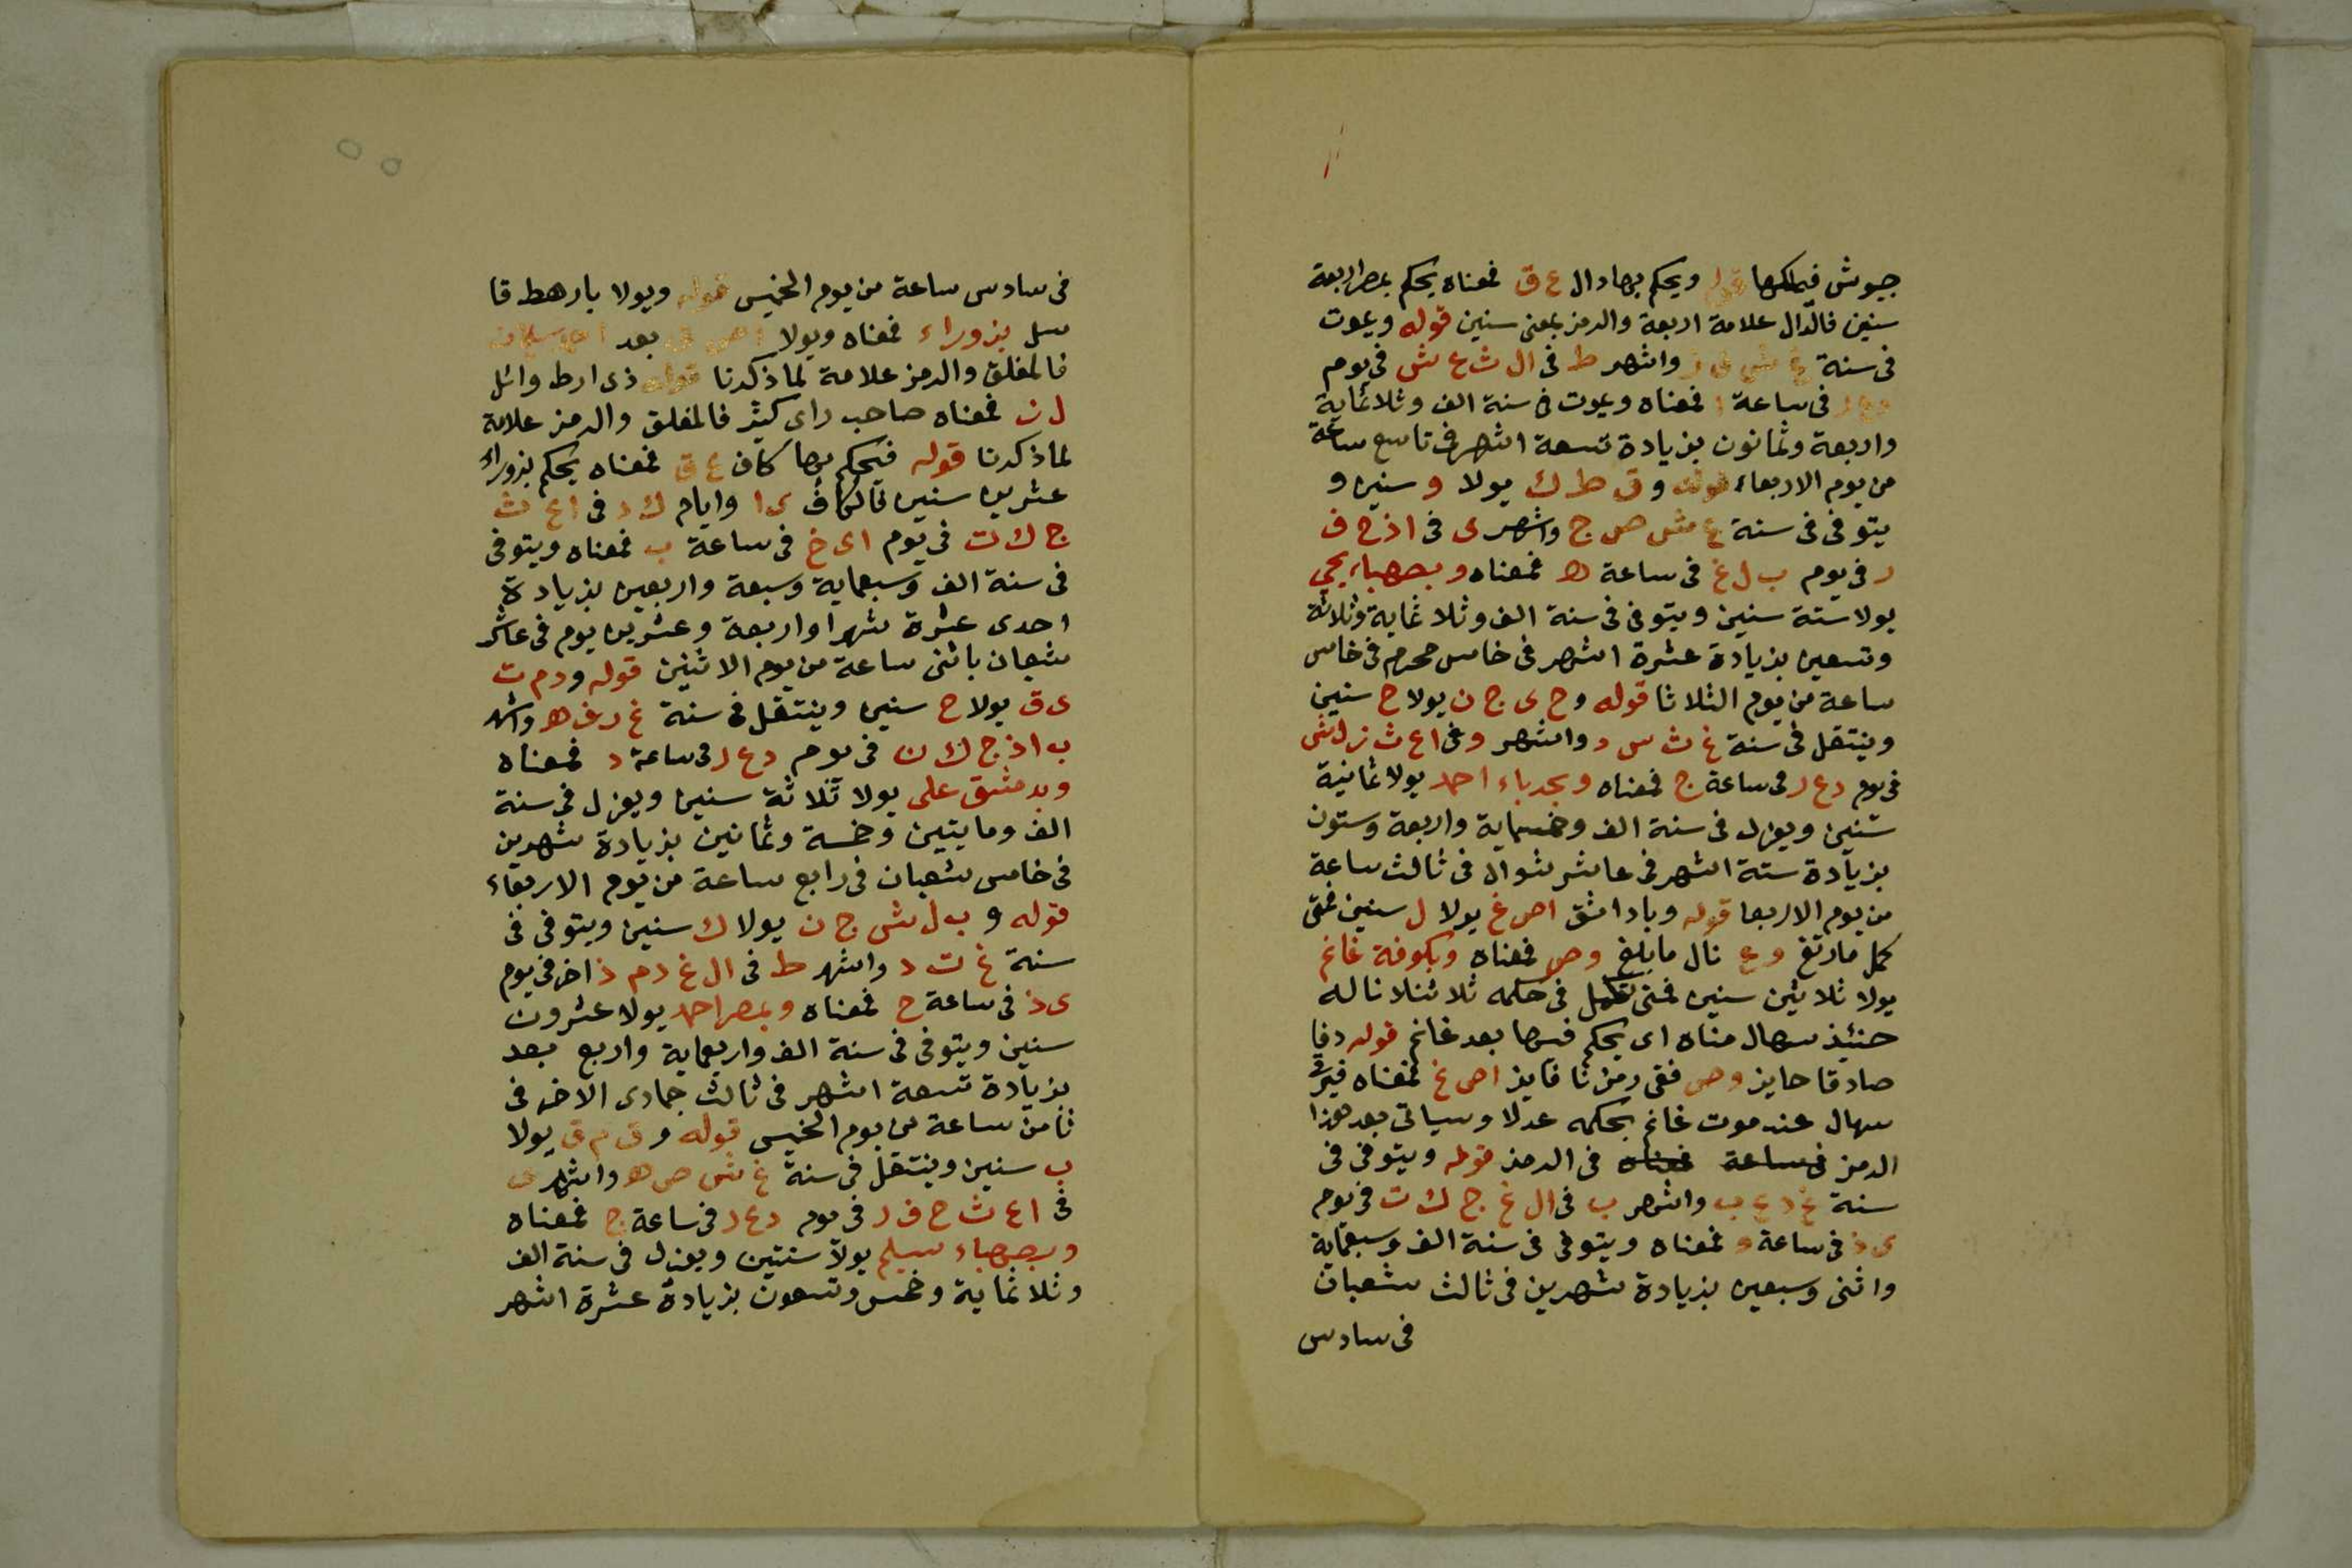 جيوش فيملكها قوله ويحكم بها دال ع ق فمعناه يحكم بمصر اربعة
سنين فالدال علامة اربعة والرمز بمعنى سنين قوله ويموت
فى سنة غ ش ف د واشهر ط فى ال ث ع ش فى يوم
د ع ر فى ساعة فمعناه ويموت فى سنة الف وثلاثماية
واربعة وثمانون بزيادة تسعة اشهر فى تاسع ساعة
من يوم الاربعاء قوله و ق ط ك يولا و سنين و
يتوفى فى سنة غ ش ص ج واشهر ى فى ا ذ ح ف
ر فى يوم ب ل غ فى ساعة ه فمعناه وبصهباء يحيي
يولا ستة سنين ويتوفى فى سنة الف وثلاثماية وثلاثة
وتسعين بزيادة عشرة اشهر فى خامس محرم فى خامس
ساعة من يوم الثلاثا قوله و ح ى ج ن يولا ح سنين
وينتقل فى سنة غ ث س د واشهر و فى ا ع ث ز ل ش
فى يوم د ع ر فى ساعة ج فمعناه وبحدباء احمد يولا ثمانية
سنين ويعزل فى سنة الف وخمسماية واربعة وستون
بزيادة ستة اشهر فى عاشر شوال فى ثالث ساعة
من يوم الاربعا قوله وبادا شق اص غ يولا ل سنين فمتى
كمل مارتغ و ع نال مابلغ وص فمعناه وبكوفة غانم
يولا ثلاثين سنين فمتى كمل فى حكمه ثلاثنلانا له
حنئيذ سهال مناه اى يحكم فيها بعد غانم قوله دفا
صادقا حايز وص فقى رمزنا فايز اص غ فمعناه فيرق
سهال عند موت غانم بحكمه عدلا وسياتى بعد هذا
الرمز فى ساعة فمعناه فى الرمز قوله ويتوفى فى
سنة غ د ع ب واشهر ب فى ال غ ج ك ت فى يوم
ى ذ فى ساعة و فمعناه ويتوفى فى سنة الف وسبعماية
واثنى وسبعين بزيادة شهرين فى ثالث شعبان
فى سادس
فى سادس ساعة من يوم الخميس قوله ويولا بارهط قا
سل بزوراء فمعناه ويولا بعد
فالمغلق والرمز علامة لما ذكرنا قوله ذى ارط وائل
ل ن فمعناه صاحب راى كثير فالمغلق والرمز علامة
لما ذكرنا قوله فيحكم بها كاف ع ق فمعناه يحكم بزوراء
عشرين سنين فالكاف ى ا وايام ك د فى ا ع ث
ج ك ت فى يوم اى خ فى ساعة ب فمعناه ويتوفى
فى سنة الف وسبعماية وسبعة واربعين بزيادة
احدى عشرة شهرا واربعة وعشرين يوم فى عاشر
شعبان باثنى ساعة من يوم الاثنين قوله و د م ت
ى ق يولا ح سنين وينتقل فى سنة غ ر ف ه واشهر
ب ا ذ ج ك ن فى يوم د ع ر فى ساعة د فمعناه
وبدمشق على يولا ثلاثة سنين ويعزل فى سنة
الف ومايتين وخمسة وثمانين بزيادة شهرين
فى خامس شعبان فى رابع ساعة من يوم الاربعاء
قوله و ب ل ش ج ن يولا ك سنين ويتوفى فى
سنة غ ت د واشهر ط فى ال غ د م ذ اخر فى يوم
ى ذ فى ساعة ح فمعناه وبمصر احمد يولا عشرون
سنين ويتوفى فى سنة الف واربعماية واربع بعد
بزيادة تسعة اشهر فى ثالث جمادى الاخر فى
ثامن ساعة من يوم الخميس قوله و ق م ق يولا
ب سنين وينتقل فى سنة غ ش ص ه واشهر ى
فى ا ع ث ح ف ر فى يوم د ع ر فى ساعة ج فمعناه
وبصهباء سليم يولا سنتين ويعزل فى سنة الف
وثلاثماية وخمس وتسعون بزيادة عشرة اشهر